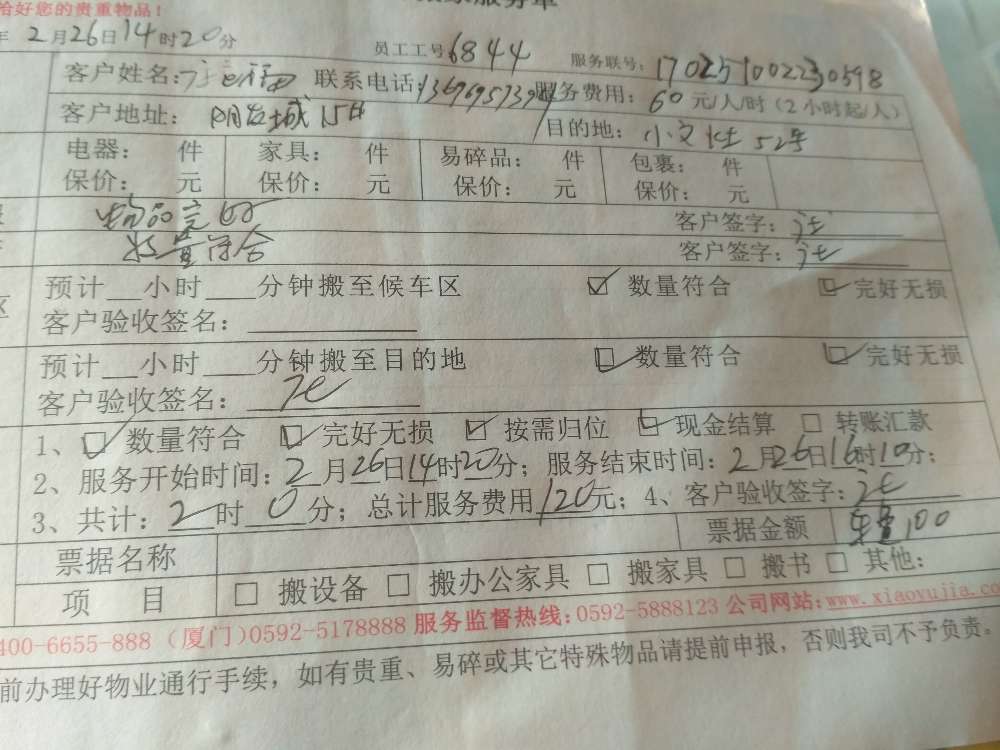 好您的贵重物品！
服务单
年2月26日14时20分 员工工号6844 服务联号：170251002230598
客户姓名： 联系电话： 服务费用：60元/人/时（2小时起/人）
客户地址：明发城 目的地：
电器： 件 家具： 件 易碎品： 件 包裹： 件
保价： 元 保价： 元 保价： 元 保价： 元
物品完好 客户签字：
数量符合 客户签字：
预计__小时___分钟搬至候车区 数量符合 完好无损
区
客户验收签名：
预计__小时___分钟搬至目的地 数量符合 完好无损
客户验收签名：
1、数量符合 完好无损 按需归位 现金结算 转账汇款
2、服务开始时间：2月26日14时20分；服务结束时间：2月26日16时10分；
3、共计：2时0分；总计服务费用120元；4、客户验收签字：
票据名称 票据金额 100
项 目 □ 搬设备 □ 搬办公家具 □ 搬家具 □ 搬书 □ 其他：
400-6655-888（厦门）0592-5178888 服务监督热线：0592-5888123 公司网站：www.xiaoyujia.co
前办理好物业通行手续，如有贵重、易碎或其它特殊物品请提前申报，否则我司不予负责。